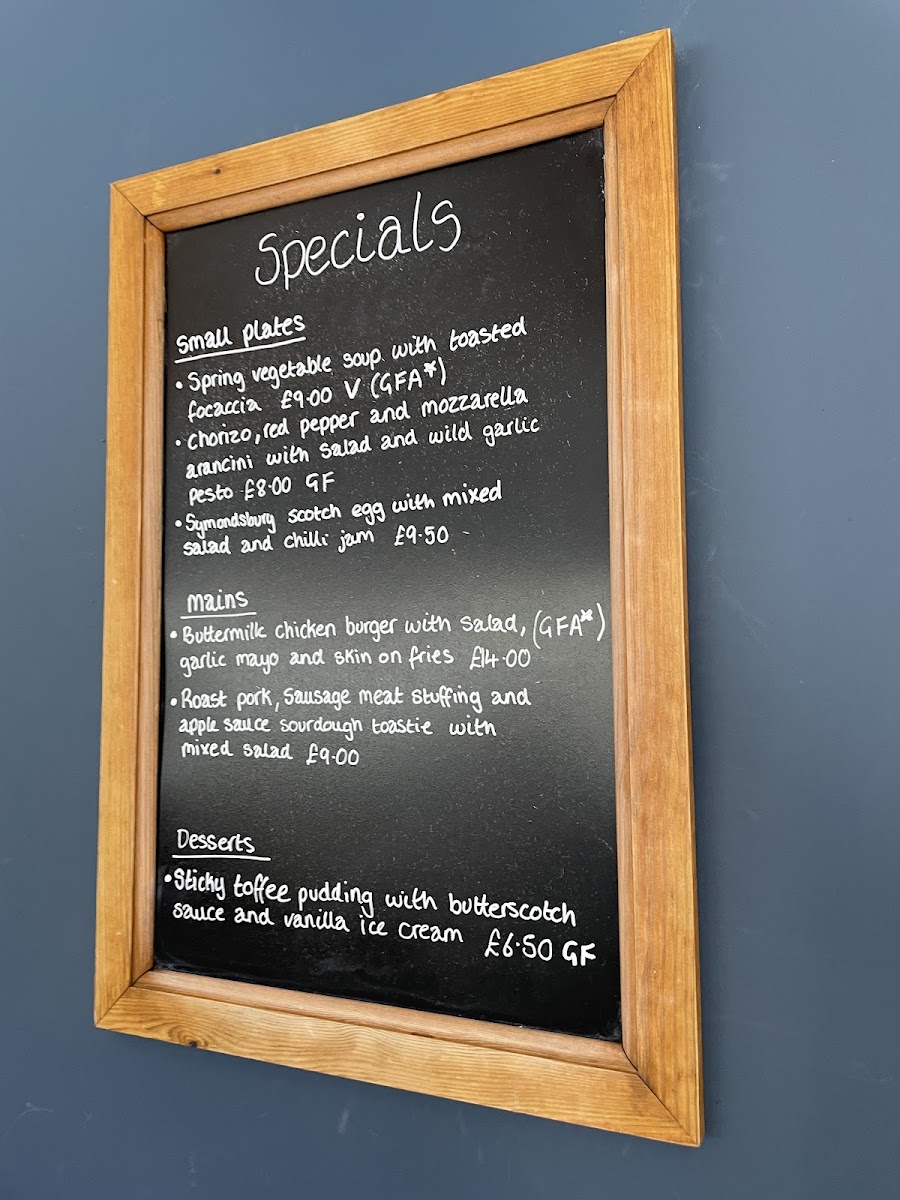 Specials
Small plates
• Spring vegetable soup with toasted
focaccia £9.00 V (GFA*)
• Chorizo, red pepper and mozzarella
arancini with salad and wild garlic
pesto £8.00 GF
• Symondsbury scotch egg with mixed
salad and chilli jam £9.50
Mains
• Buttermilk chicken burger with salad, (GFA*)
garlic mayo and skin on fries £14.00
• Roast pork, sausage meat stuffing and
apple sauce sourdough toastie with
mixed salad £9.00
Desserts
• Sticky toffee pudding with butterscotch
sauce and vanilla ice cream £6.50 GF